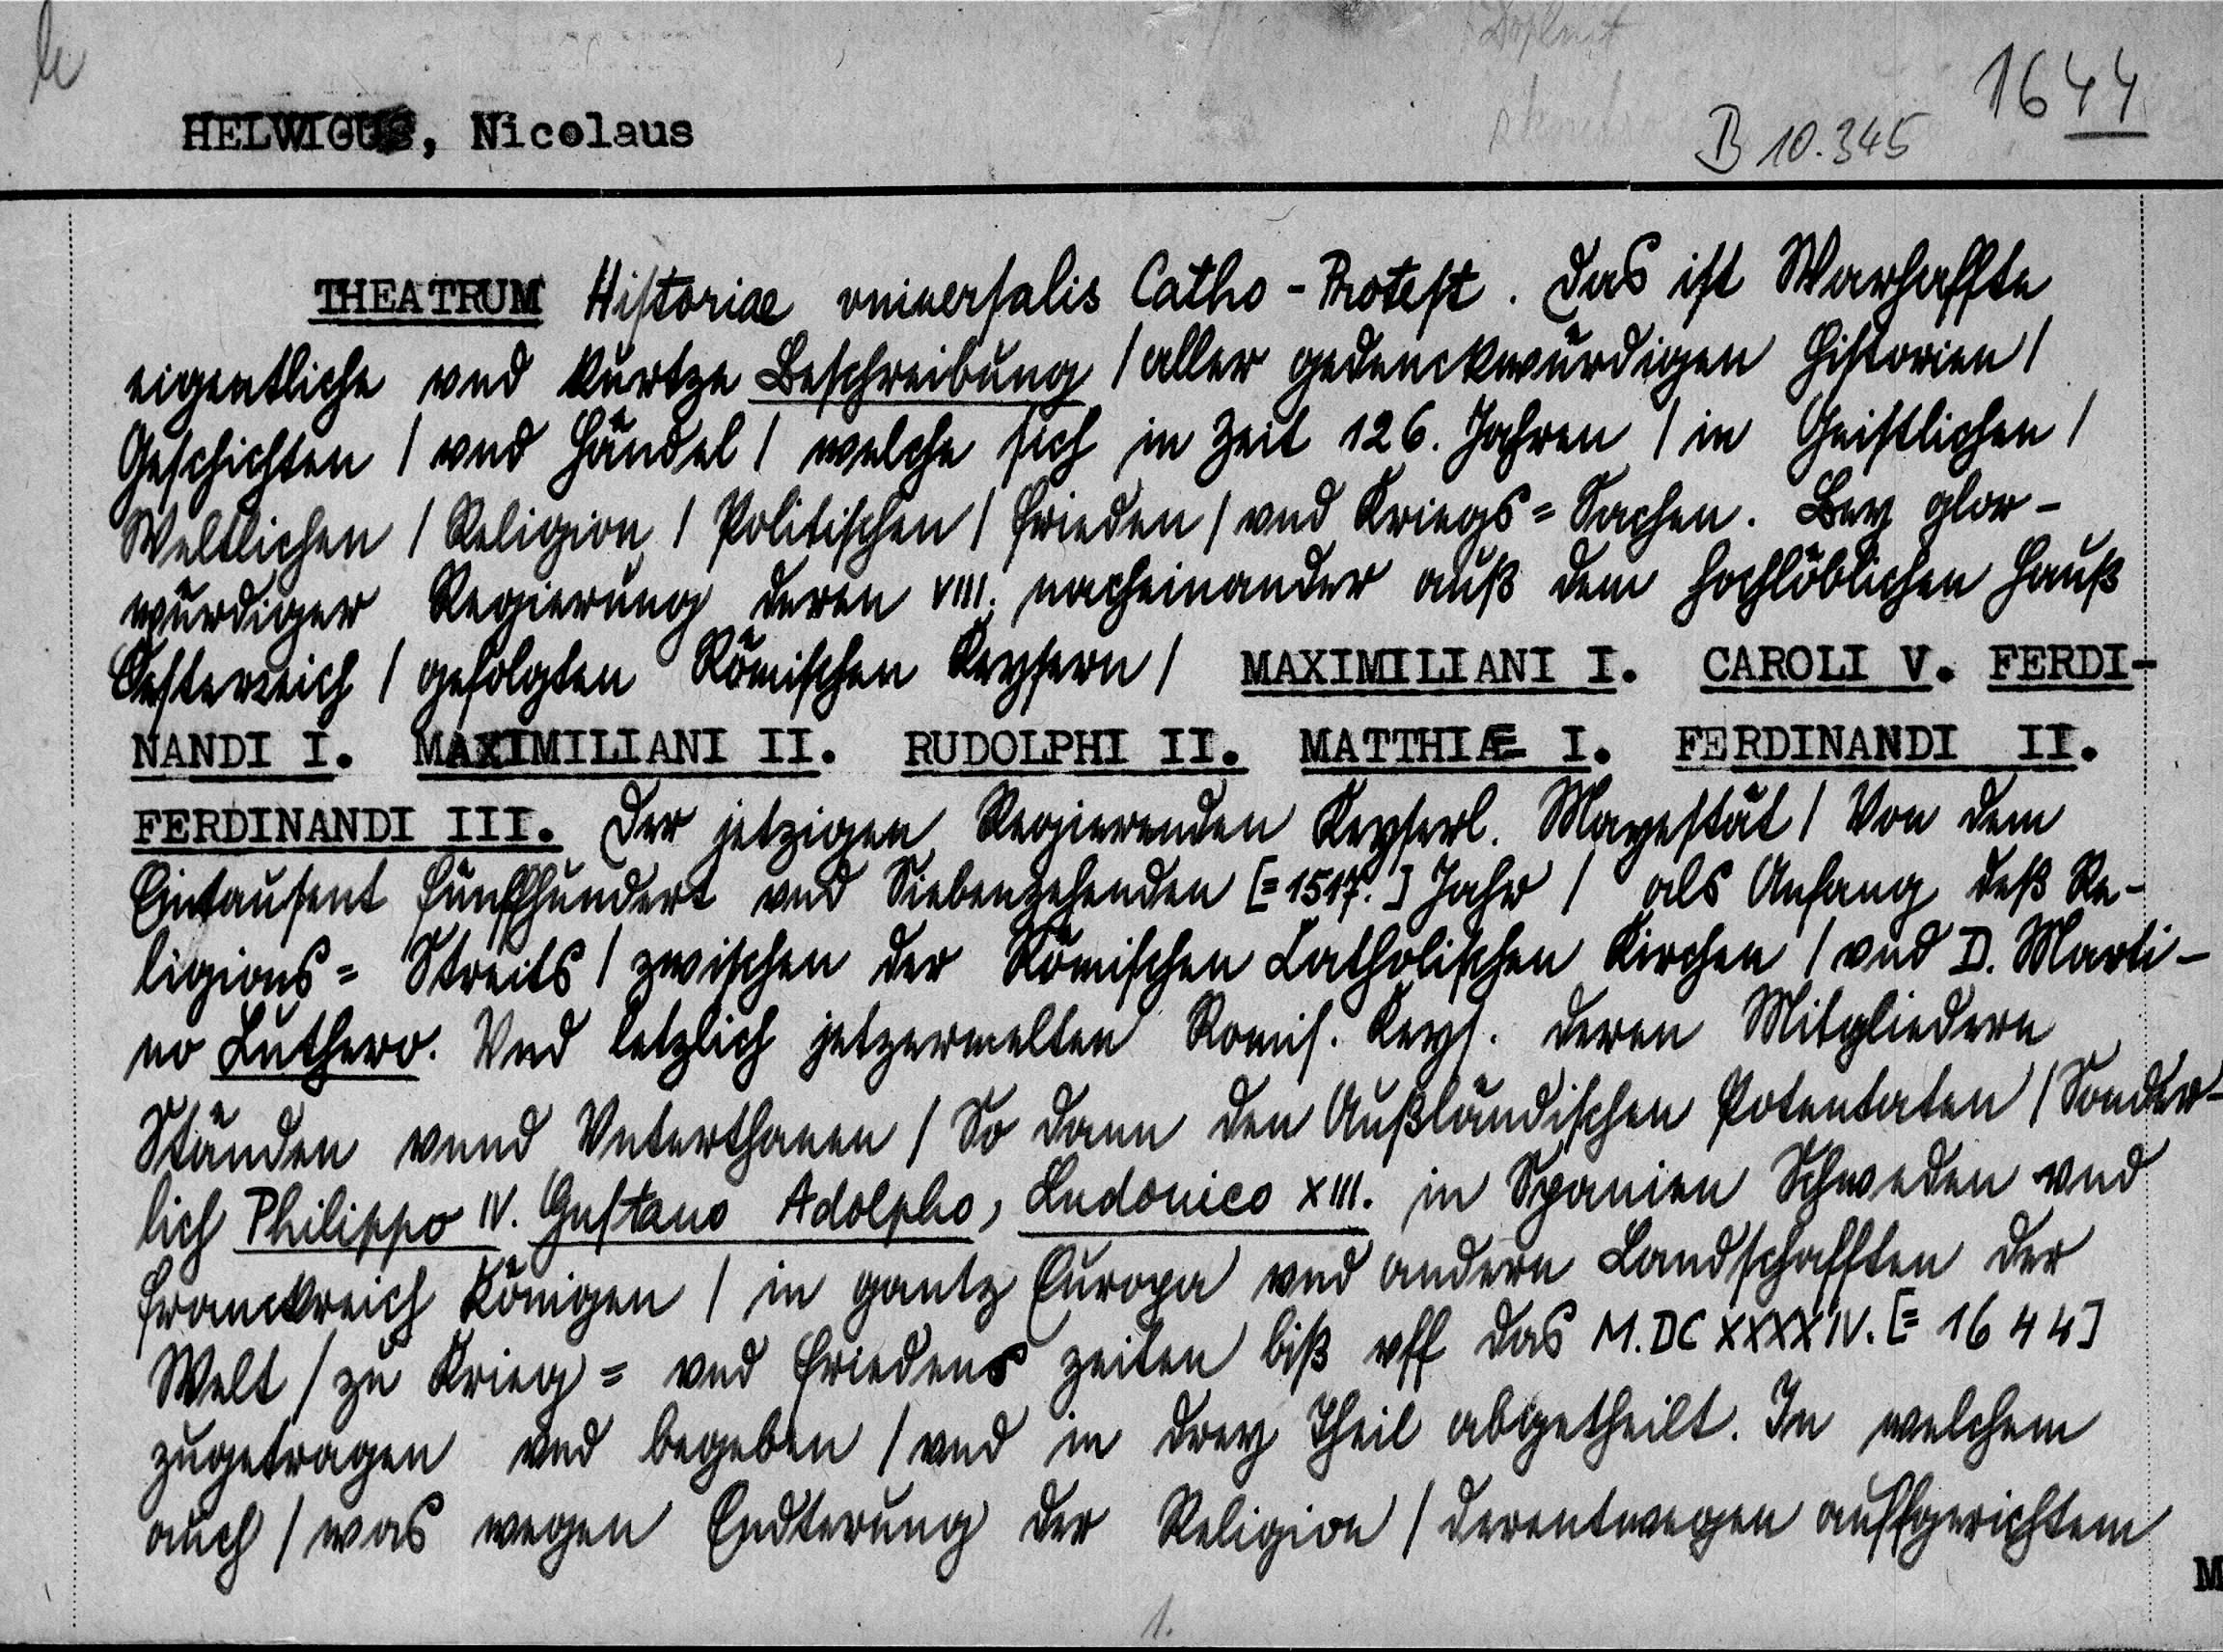 1644
HELWIGUS, Nicolaus
B 10.345
THEATRUM Historiae vniuersalis Catho-Protest. Das ist Warhaffte
eigentliche vnd kurtze Beschreibung / aller gedenckwürdigen Historien /
Geschichten / vnd Händel / welche sich in Zeit 126. Jahren / in Geistlichen /
Weltlichen / Religion / Politischen / Frieden / vnd Kriegs= Sachen. Bey glor-
würdiger Regierung deren VIII. nacheinander auß dem hochlöblichen Hauß
Oesterreich / gefolgten Römischen Keysern / MAXIMILIANI I. CAROLI V. FERDI-
NANDI I. MAXIMILIANI II. RUDOLPHI II. MATTHIÆ I. FERDINANDI II.
FERDINANDI III. Der jetzigen Regierenden Keyserl. Mayestät / Von dem
Eintausent fünffhundert vnd Siebenzehenden [=1517.] Jahr / als Anfang deß Re-
ligions= Streits / zwischen der Römischen Catholischen Kirchen / vnd D. Marti-
no Luthero. Vnd letzlich jetzermelten Romis. Keys. deren Mitgliedern
Ständen vnnd Vnterthanen / So dann den Außländischen Potentaten / Sonder-
lich Philippo IV. Gustauo Adolpho, Ludouico XIII. in Spanien Schweden vnd
Franckreich Königen / in gantz Europa vnd andern Landschafften der
Welt / zu Krieg= vnd Friedens zeiten biß vff das M.DC XXXXIV. [= 1644]
zugetragen vnd begeben / vnd in drey Theil abgetheilt. In welchem
auch / was wegen Endterung der Religion / derentwegen auffgerichtem
1.